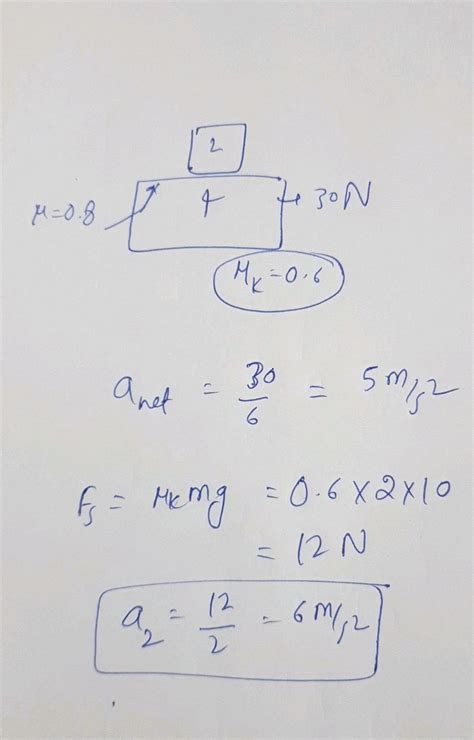 2
μ=0.8 4 30N
μk=0.6
anet = 30/6 = 5m/s2
fs = μkmg = 0.6×2×10
= 12N
a2 = 12/2 = 6m/s2